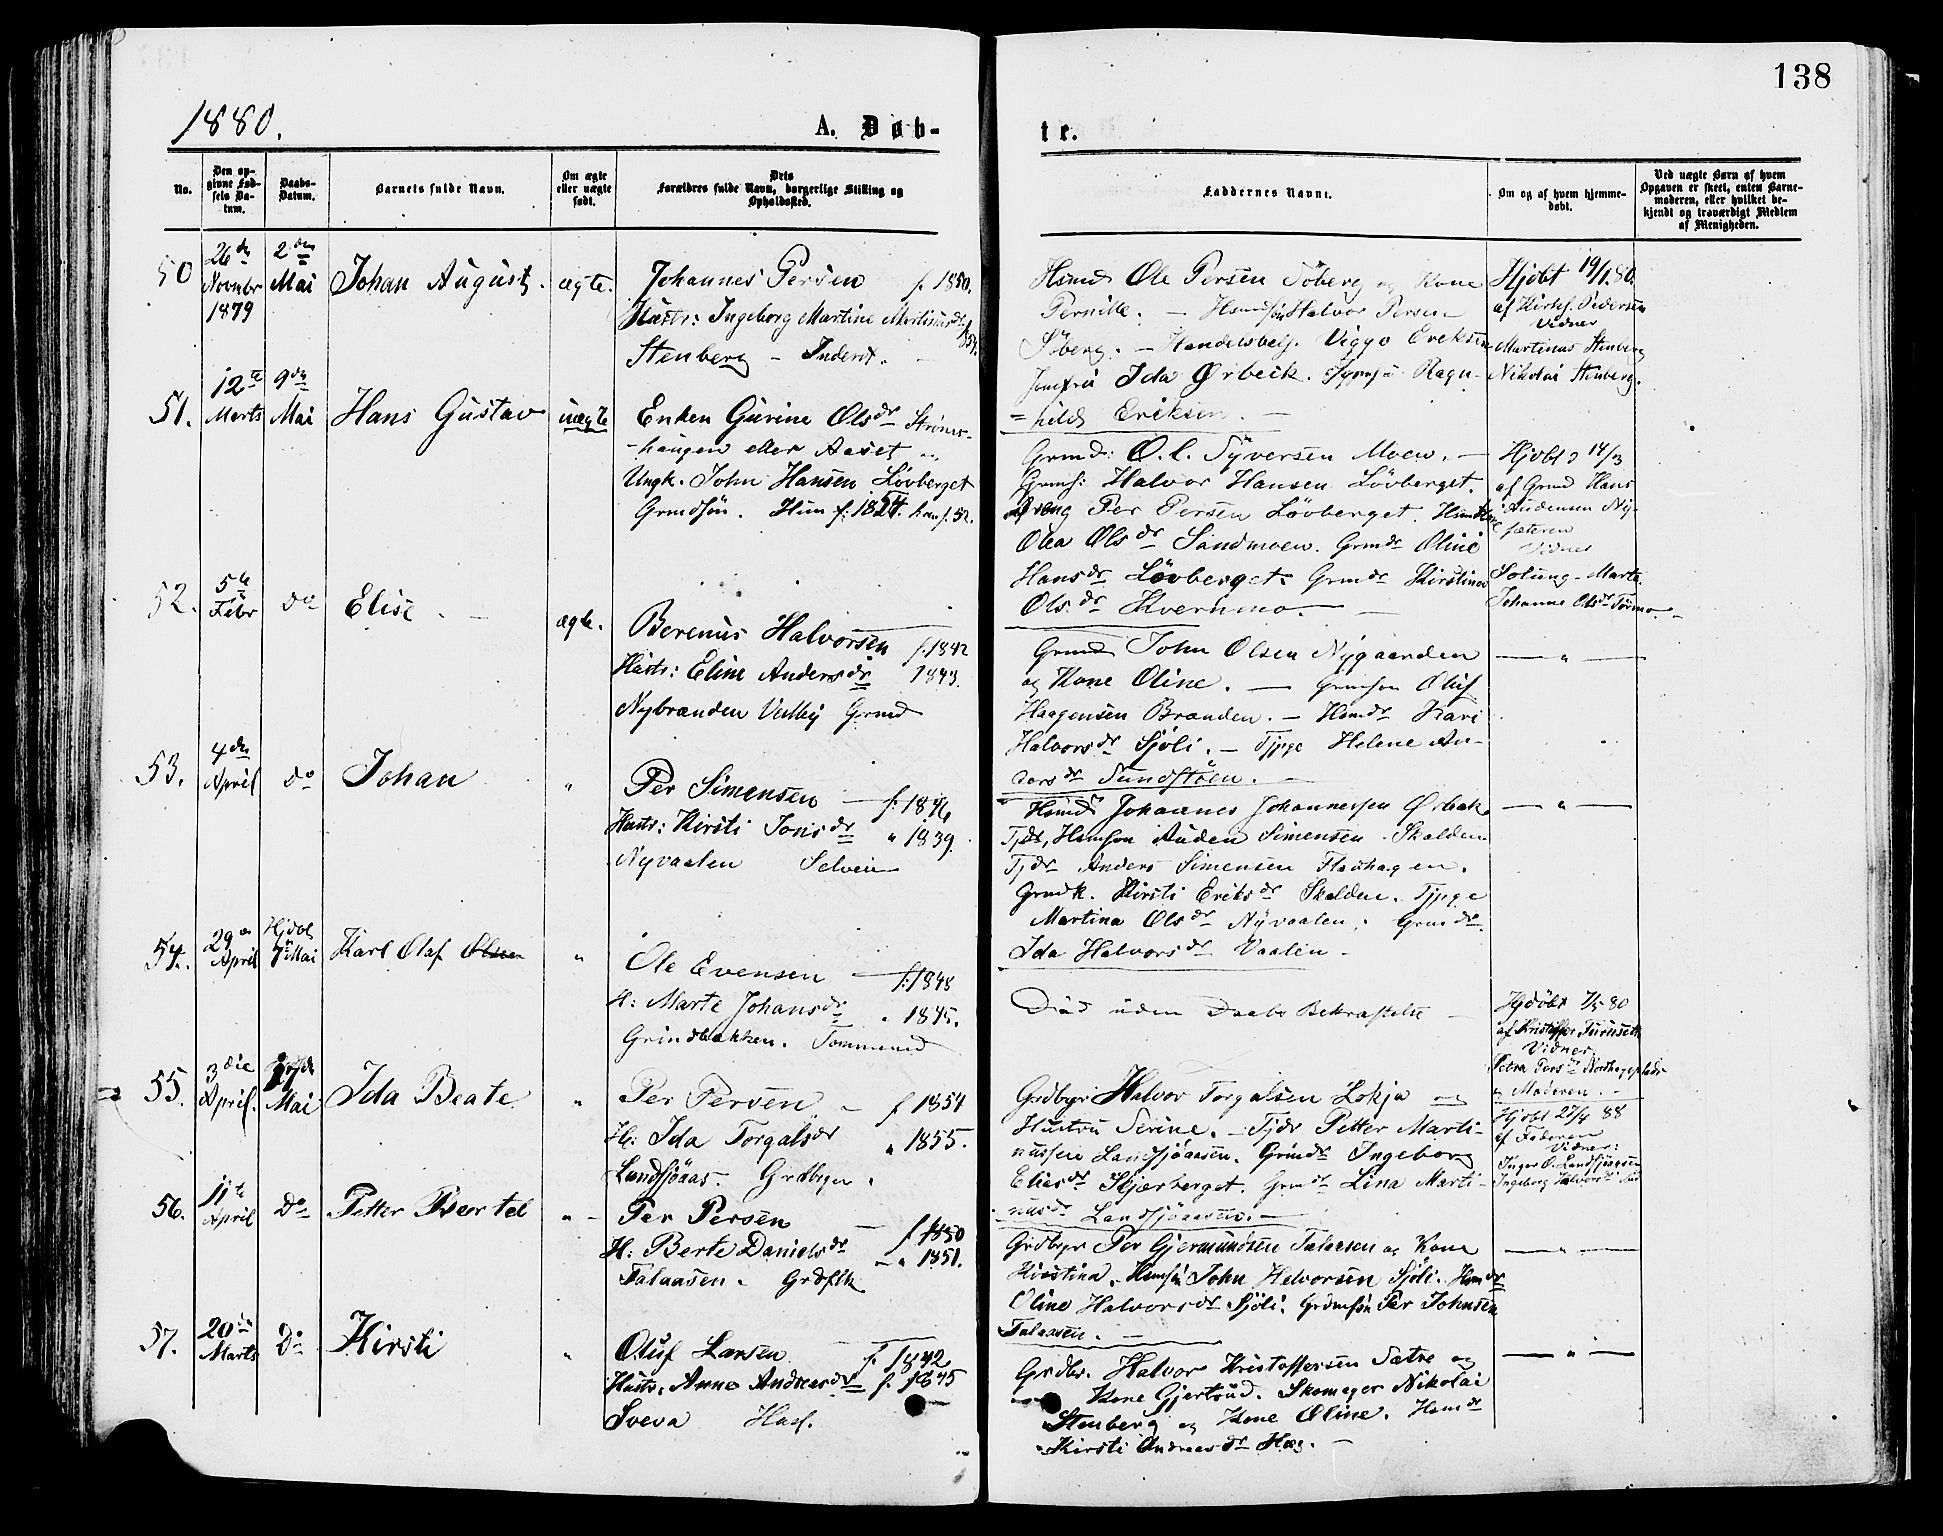 138
1880.
A. Døb-
te.
No.
Den op-
givne Fød-
sels Da-
tum.
Daabs-
Datum.
Barnets fulde Navn.
Om ægte
eller uægte
født.
Dets
Forældres fulde Navn, borgerlige Stilling og
Opholdssted.
Faddernes Navne.
Om og af hvem hjemme-
døbt.
Ved uægte Børn af hvem
Opgaven er skeet, enten Barne-
moderen, eller hvilket be-
kjendt og troværdigt Medlem
af Menigheden.
50
26de
Novmbr
1879
2den
Mai
Johan August.
ægte.
Johannes Persen f. 1850.
Hustr: Ingeborg Martine Martinusdr
Stenberg – Inderst.
Hsmd Ole Persen Søberg og Kone
Pernille. – Halvor Persen
Søberg. – Handelsbetj. Viggo Eriksen
Jomfru Ida Ørbeck. Ragn-
= hild Eriksen. –
Hjdbt 19/1 80.
af Kirks. Pedersen
Vidner
Martinus Stenberg
Nikolai Stenberg.
51.
12te
Marts
9de
Mai
Hans Gustav
uægte
Enken Gurine Olsdr Strøms-
haugen eller Aaset og
Ungk. John Hansen Løvberget
Grmdsøn. Hun f. 1824. han f. 52.
Grmd: O. l. Syversen Moen. –
Grmds: Halvor Hansen Løvberget.
Dreng Per Persen Løvberget.
Olea Olsdr Sandmoen. Grmdr Oline
Hansdr Løvberget. Grmdr Kirstine
Olsdr Kvernmo –
Hjdbt 14/3
af Grmd Hans
Audensen Ny-
sæteren
Vidner
Solung-Marte
Johanne Olsdr Tørmo. –
52.
5te
Febr
do
Elise. –
ægte.
Berenus Halvorsen f. 1842
Hustr: Eline Andersdr 1843.
Nybranden Vestby Grmd
Grmd John Olsen Nygaarden
og Kone Oline. – Grmsøn Oluf
Haagensen Branden. – Hsmdr Kari
Halvorsdr Sjøli. – Tjpge Helene An-
dersdr Sundstøen. –
— " —
53.
4de
April
do
Johan
"
Per Simensen f. 1846
Hustr: Kirsti Jonsdr " 1839.
Nyvaalen Selveier
Hsmd Johannes Johannessen Ørbak
Tjdr, Hsmsøn Auden Simensen Skalden
Tjdr Anders Simensen Fladhagen.
Grmdk. Kirsti Eriksdr Skalden. Tjpge
Martina Olsdr Nyvaalen. Grmdr
Ida Halvorsdr Vaalen –
— " —
54.
29de
April
Hjdbt
7de Mai
Karl Olaf Olsen
"
Ole Evensen f. 1848
H: Marte Johansdr " 1845.
Grindbakken. Tømmermd
Død uden Daabs Bekræftelse –
Hjdøbt 7/5 80
af Kristoffer Furuseth
Vidner
Petra Persdr
og Moderen. –
55.
3die
April.
Mai
Ida Beate
"
Per Persen – f 1854
H: Ida Torgalsdr " 1855.
Landsjøaas. Grdbrger.
Grdbgr Halvor Torgalsen Lokja og
Hustru Serine. – Tjdr Petter Marti-
nussen Landsjøaasen. Grmdr Ingeborg
Eliesdr Skjærberget. Grmdr Lina Marti-
nusdr Landsjøaasen. –
Hjdbt 27/4 88
af Faderen
Vidner:
Inger O. Landsjøaasen
Ingeborg Halvorsdr
56.
11te
April
Do
Petter Bertel
"
Per Persen – f 1850
H: Berte Danielsdr – " 1851.
Falaasen. Grdfstk
Grdbgr Per Gjermundsen Falaasen og Kone
Kirstina. Hsmsøn John Halvorsen Sjøli. Hsmdr
Oline Halvorsdr Sjøli. Grdmsøn Per Johnsen
Falaasen. –
— " —
57.
20de
Marts
Do
Kirsti
"
Oluf Larsen f. 1842
Hustr. Anne Andreasdr f. 1845
Sveva Hasf.
Grdbr. Halvor Kristoffersen Sætre og
Kone Gjertrud. Skomager Nikolai
Stenberg og Kone Oline. Hsmdr
Kirsti Andreasdr Hag. –
— " —